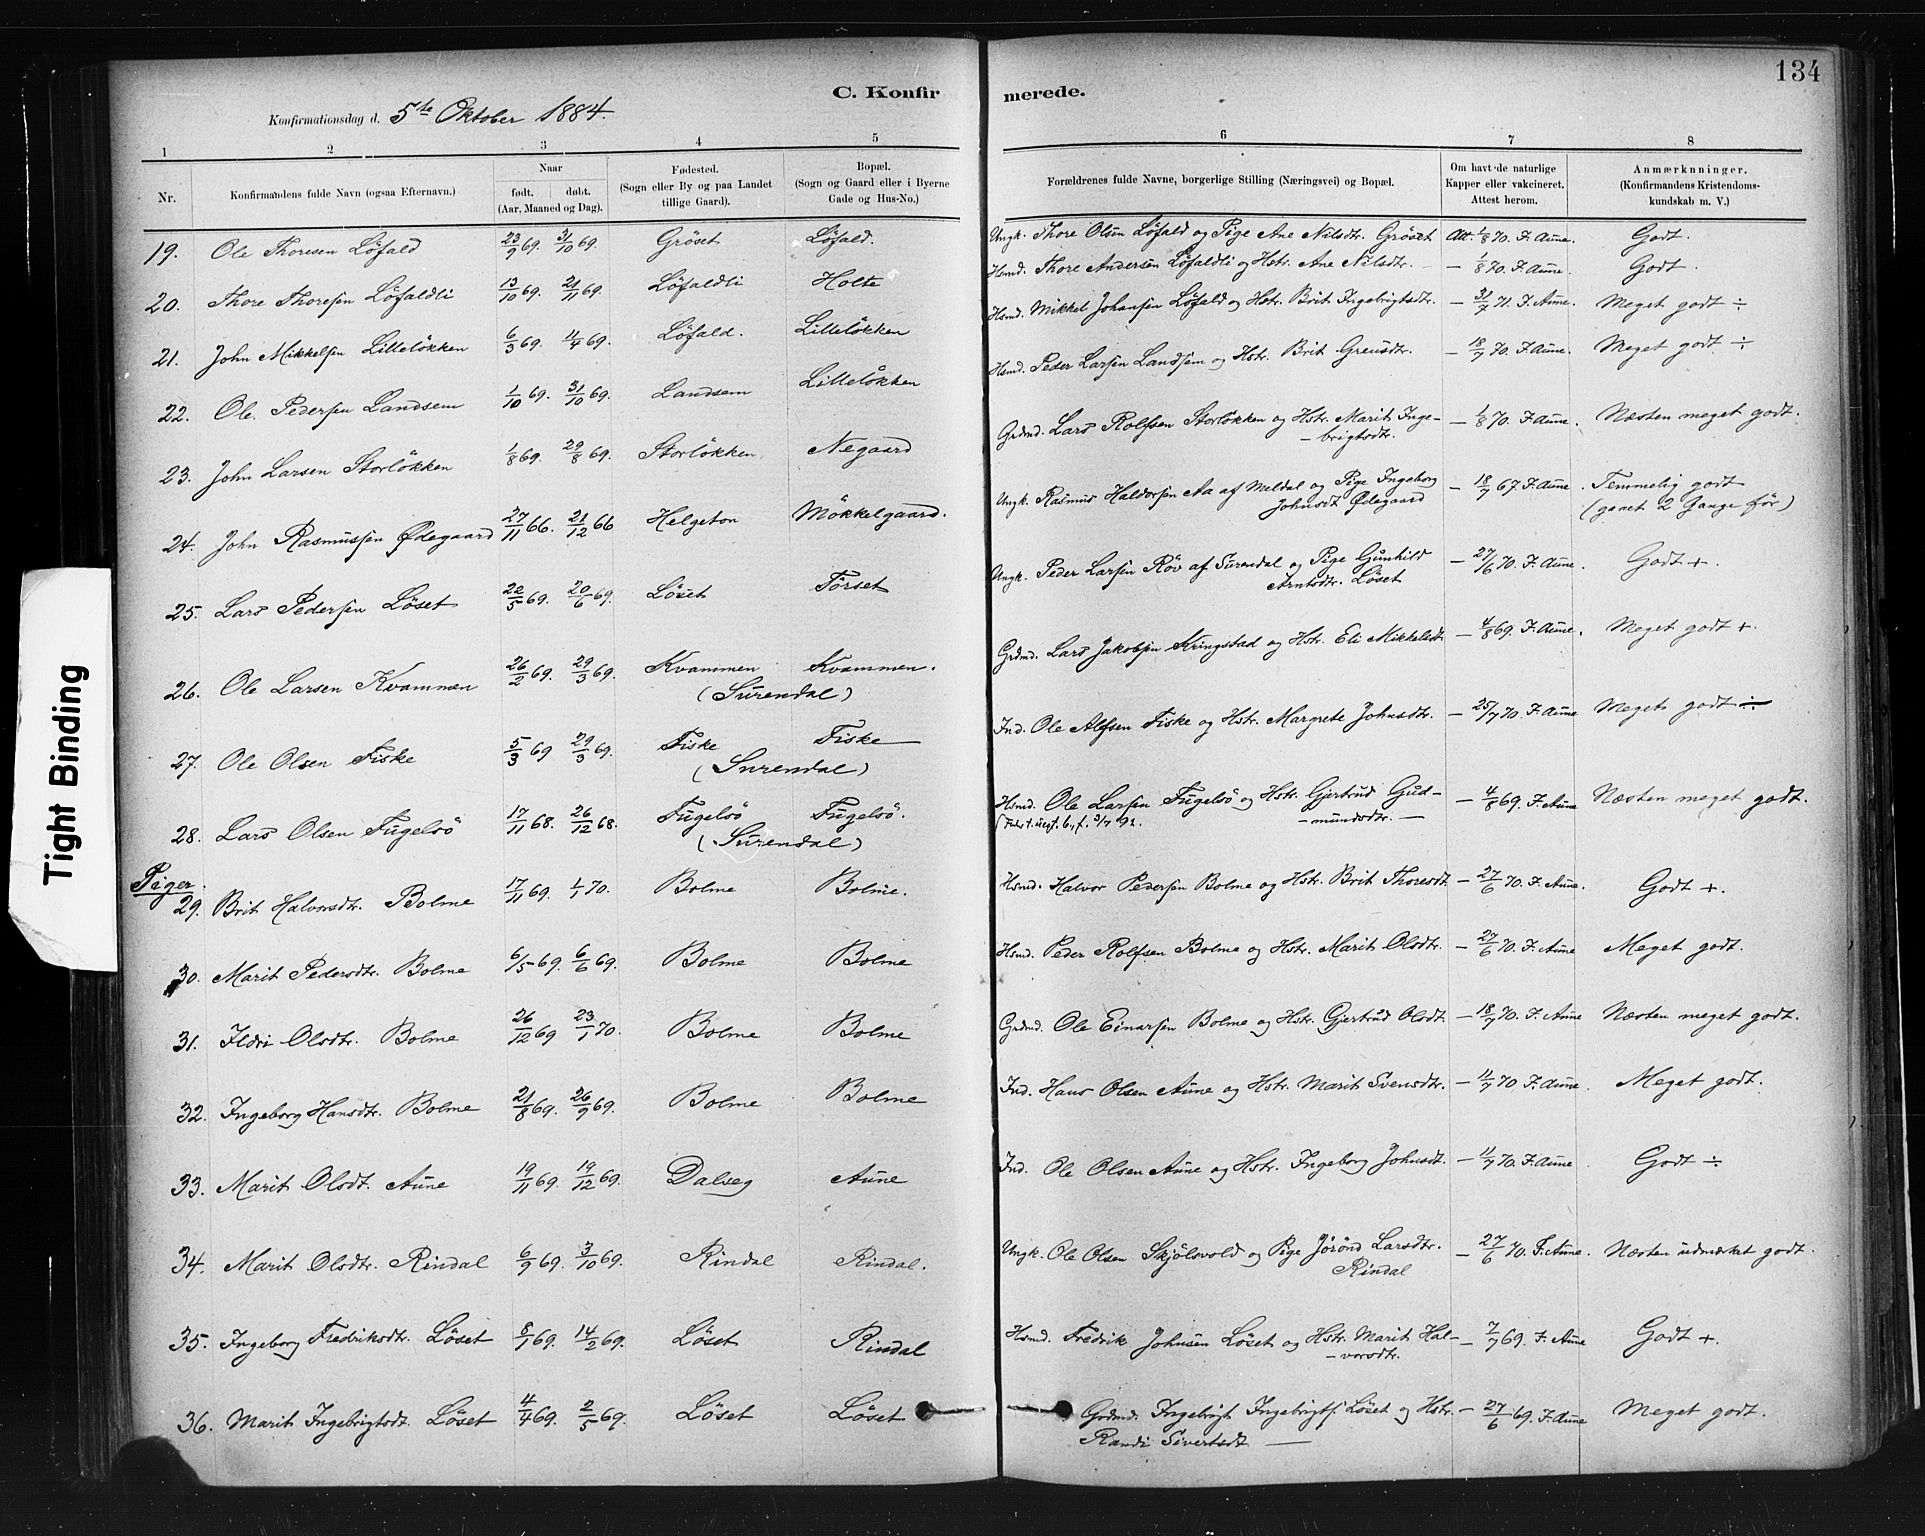 134
C. Konfir merede.
Konfirmationsdag d. 5te Oktober 1884.
1 2 3 4 5 6 7 8
Nr. Konfirmandens fulde Navn (ogsaa Efternavn.) Naar født. døbt. (Aar, Maaned og Dag). Fødested. (Sogn eller By og paa Landet tillige Gaard). Bopæl. (Sogn og Gaard eller i Byerne Gade og Hus-No.) Forældrenes fulde Navne, borgerlige Stilling (Næringsvei) og Bopæl. Om havt de naturlige Kapper eller vakcineret. Attest herom. Anmærknninger. (Konfirmandens Kristendomskundskab m. V.)
19. Ole Thoresen Löfald 23/9 69. 31/10 69. Gröset Löfald. Ungk. Thore Olsen Löfald og Pige Ane Nilsdtr. Gröset Att. 1/8 70. F. Aune. Godt.
20. Thore Thoresen Löfaldli 13/10 69. 21/11 69. Löfaldli Holte Hsmd. Thore Andersen Löfaldli og Hstr. Ane Nilsdtr. – 1/8 70. F. Aune. Godt.
21. John Mikkelsen Lilleløkken 6/3 69. 4/4 69. Löfald. Lilleløkken Hsmd. Mikkel Johansen Löfald og Hstr. Brit Ingebrigtsdtr. – 31/7 71. F. Aune. Meget godt ÷
22. Ole Pedersen Landsem 1/10 69. 31/10 69. Landsem Lilleløkken Hsmd. Peder Larsen Landsem og Hstr. Brit Greusdtr. – 18/7 70. F. Aune. Meget godt ÷
23. John Larsen Storløkken 1/8 69. 29/8 69. Storløkken Negaard Grdmd. Lars Rolfsen Storløkken og Hstr. Marit Inge-
-brigtsdtr. – 1/8 70. F. Aune. Næsten meget godt.
24. John Rasmussen Ødegaard 27/11 66. 21/12 66 Helgeton Mökkelgaard. Ungk. Rasmus Haldorsen Aa af Meldal og Pige Ingeborg
Johnsdt Ødegaard – 18/7 67. F. Aune. Temmelig godt
(gaaet 2 Gange før)
25. Lars Pedersen Löset 22/5 69. 20/6 69. Löset Törset Ungk. Peder Larsen Röv af Surendal og Pige Gunhild
Arntsdtr. Löset – 27/6 70. F. Aune. Godt +.
26. Ole Larsen Kvammen 26/2 69. 29/3 69. Kvammen Kvammen.
(Surendal) Grdmd. Lars Jakobsen Kringstad og Hstr. Eli Mikkelsdt. – 4/8 69. F. Aune. Meget godt +
27. Ole Olsen Fiske 5/3 69 29/3 69. Fiske Fiske
(Surendal) Ind. Ole Alfsen Fiske og Hstr. Margrete Johnsdtr. – 25/7 70. F. Aune Meget godt ÷
28. Lars Olsen Fugelsö 17/11 68. 26/12 68. Fugelsö Fugelsö.
(Surendal) Hsmd. Ole Larsen Fugelsö og Hstr. Gjertrud Gud-
-mundsdtr. – 4/8 69. F. Aune Næsten meget godt.
Piger.
29. Brit Halvorsdtr. Bolme 17/11 69. 1/1 70. Bolme Bolme. Hsmd. Halvor Pedersen Bolme og Hstr. Brit Thoresdt – 27/6 70. F. Aune. Godt +.
30. Marit Pedersdtr. Bolme 6/5 69 6/6 69. Bolme Bolme Hsmd. Peder Rolfsen Bolme og Hstr. Marit Olsdtr. – 27/6 70. F. Aune Meget godt.
31. Ildri Olsdtr. Bolme 26/12 69 23/1 70. Bolme Bolme Grdmd. Ole Einarsen Bolme og Hstr. Gjertrud Olsdt. – 18/7 70. F. Aune Næsten meget godt.
32. Ingeborg Hansdtr. Bolme 21/8 69. 26/9 69. Bolme Bolme Ind. Hans Olsen Aune og Hstr. Marit Svensdtr. – 11/7 70 F. Aune. Meget godt.
33. Marit Olsdt. Aune 19/11 69. 19/12 69. Dalseg Aune Ind. Ole Olsen Aune og Hstr. Ingeborg Johnsdt. – 11/7 70. F. Aune Godt ÷
34. Marit Olsdtr. Rindal 6/9 69. 3/10 69. Rindal Rindal. Ungk. Ole Olsen Skjölsvold og Pige Jörönd Larsdtr.
Rindal – 27/6 70. F. Aune. Næsten udmærket godt.
35. Ingeborg Fredriksdtr. Löset 8/1 69. 14/2 69. Löset Rindal Hsmd. Fredrik Johnsen Löset og Hstr. Marit Hal-
-vorsdtr. – 7/7 69. F. Aune Godt +.
36. Marit Ingebrigtsdt. Löset 4/4 69. 2/5 69. Löset Löset Grdmd. Ingebrigt Ingebrigts. Löset og Hstr.
Randi Sivertsdt – 27/6 69. F. Aune Meget godt.
Tight Binding